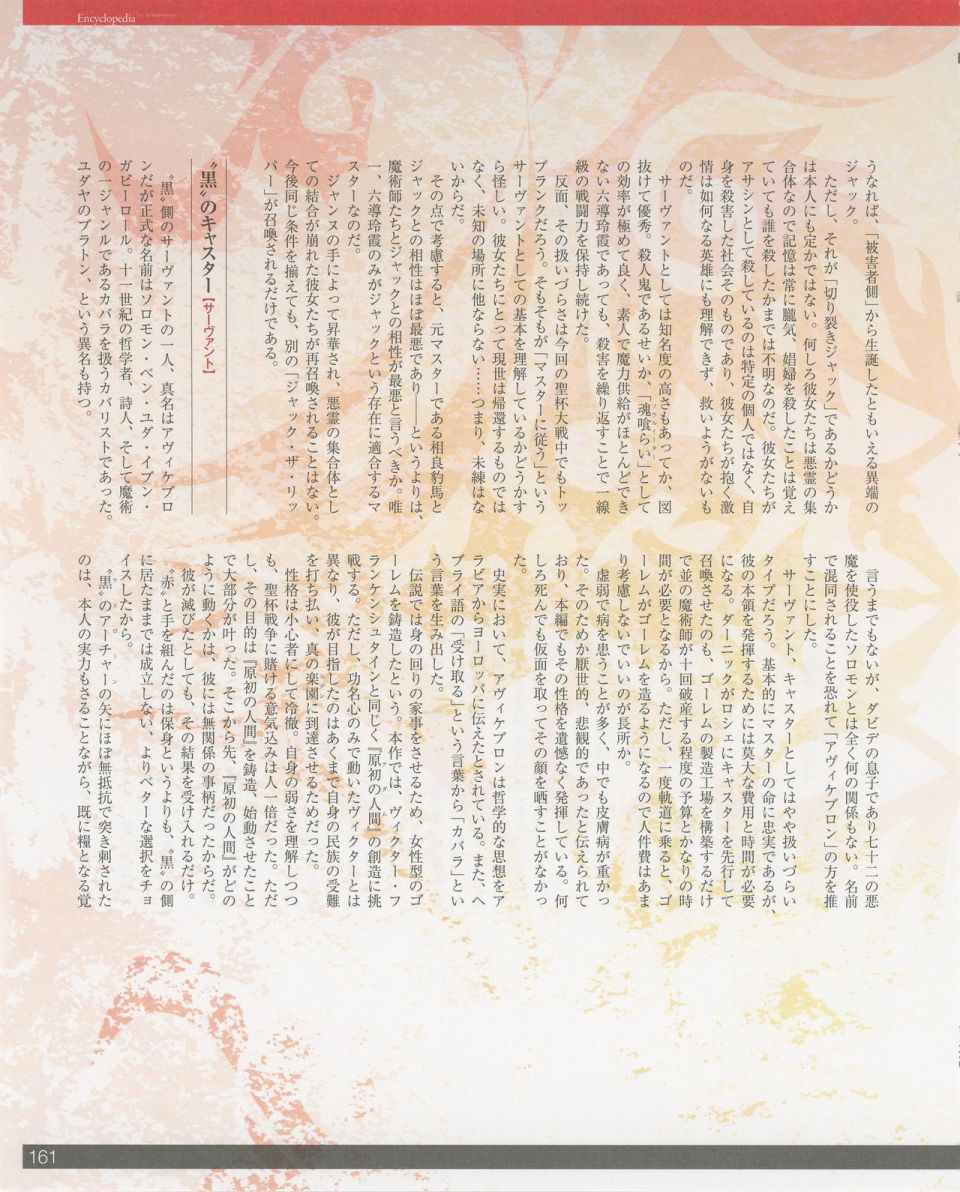 Encyclopedia
うなれば、「被害者側」から生誕したともいえる異端の
ジャック。
　ただし、それが「切り裂きジャック」であるかどうか
は本人にも定かではない。何しろ彼女たちは悪霊の集
合体なので記憶は常に朧気、娼婦を殺したことは覚え
ていても誰を殺したかまでは不明なのだ。彼女たちが
アサシンとして殺しているのは特定の個人ではなく、自
身を殺害した社会そのものであり、彼女たちが抱く激
情は如何なる英雄にも理解できず、救いようがないも
のだ。
　サーヴァントとしては知名度の高さもあってか、図
抜けて優秀。殺人鬼であるせいか、「魂喰らい」として
の効率が極めて良く、素人で魔力供給がほとんどでき
ない六導玲霞であっても、殺害を繰り返すことで一線
級の戦闘力を保持し続けた。
　反面、その扱いづらさは今回の聖杯大戦中でもトッ
プランクだろう。そもそもが「マスターに従う」という
サーヴァントとしての基本を理解しているかどうかす
ら怪しい。彼女たちにとって現世は帰還するものでは
なく、未知の場所に他ならない……つまり、未練はな
いからだ。
　その点で考慮すると、元マスターである相良豹馬と
ジャックとの相性はほぼ最悪であり――というよりは、
魔術師たちとジャックとの相性が最悪と言うべきか。唯
一、六導玲霞のみがジャックという存在に適合するマ
スターなのだ。
　ジャンヌの手によって昇華され、悪霊の集合体とし
ての結合が崩れた彼女たちが再召喚されることはない。
今後同じ条件を揃えても、別の「ジャック・ザ・リッ
パー」が召喚されるだけである。
〝黒〟のキャスター【サーヴァント】
　〝黒〟側のサーヴァントの一人、真名はアヴィケブロ
ンだが正式な名前はソロモン・ベン・ユダ・イブン・
ガビーロール。十一世紀の哲学者、詩人、そして魔術
の一ジャンルであるカバラを扱うカバリストであった。
ユダヤのプラトン、という異名も持つ。
　言うまでもないが、ダビデの息子であり七十二の悪
魔を使役したソロモンとは全く何の関係もない。名前
で混同されることを恐れて「アヴィケブロン」の方を推
すことにした。
　サーヴァント、キャスターとしてはやや扱いづらい
タイプだろう。基本的にマスターの命に忠実であるが、
彼の本領を発揮するためには莫大な費用と時間が必要
になる。ダーニックがロシェにキャスターを先行して
召喚させたのも、ゴーレムの製造工場を構築するだけ
で並の魔術師が十回破産する程度の予算とかなりの時
間が必要となるから。ただし、一度軌道に乗ると、ゴ
ーレムがゴーレムを造るようになるので人件費はあま
り考慮しないでいいのが長所か。
　虚弱で病を患うことが多く、中でも皮膚病が重かっ
た。そのためか厭世的、悲観的であったと伝えられて
おり、本編でもその性格を遺憾なく発揮している。何
しろ死んでも仮面を取ってその顔を晒すことがなかっ
た。
　史実において、アヴィケブロンは哲学的な思想をア
ラビアからヨーロッパに伝えたとされている。また、ヘ
ブライ語の「受け取る」という言葉から「カバラ」とい
う言葉を生み出した。
　伝説では身の回りの家事をさせるため、女性型のゴ
ーレムを鋳造したという。本作では、ヴィクター・フ
ランケンシュタインと同じく『原初の人間』の創造に挑
戦する。ただし、功名心のみで動いたヴィクターとは
異なり、彼が目指したのはあくまで自身の民族の受難
を打ち払い、真の楽園に到達させるためだった。
　性格は小心者にして冷徹。自身の弱さを理解しつつ
も、聖杯戦争に賭ける意気込みは人一倍だった。ただ
し、その目的は『原初の人間』を鋳造、始動させたこと
で大部分が叶った。そこから先、『原初の人間』がどの
ように動くかは、彼には無関係の事柄だったからだ。
　彼が滅びたとしても、その結果を受け入れるだけ。
〝赤〟と手を組んだのは保身というよりも、〝黒〟の側
に居たままでは成立しない、よりベターな選択をチョ
イスしたから。
　〝黒〟のアーチャーの矢にほぼ無抵抗で突き刺された
のは、本人の実力もさることながら、既に糧となる覚
161